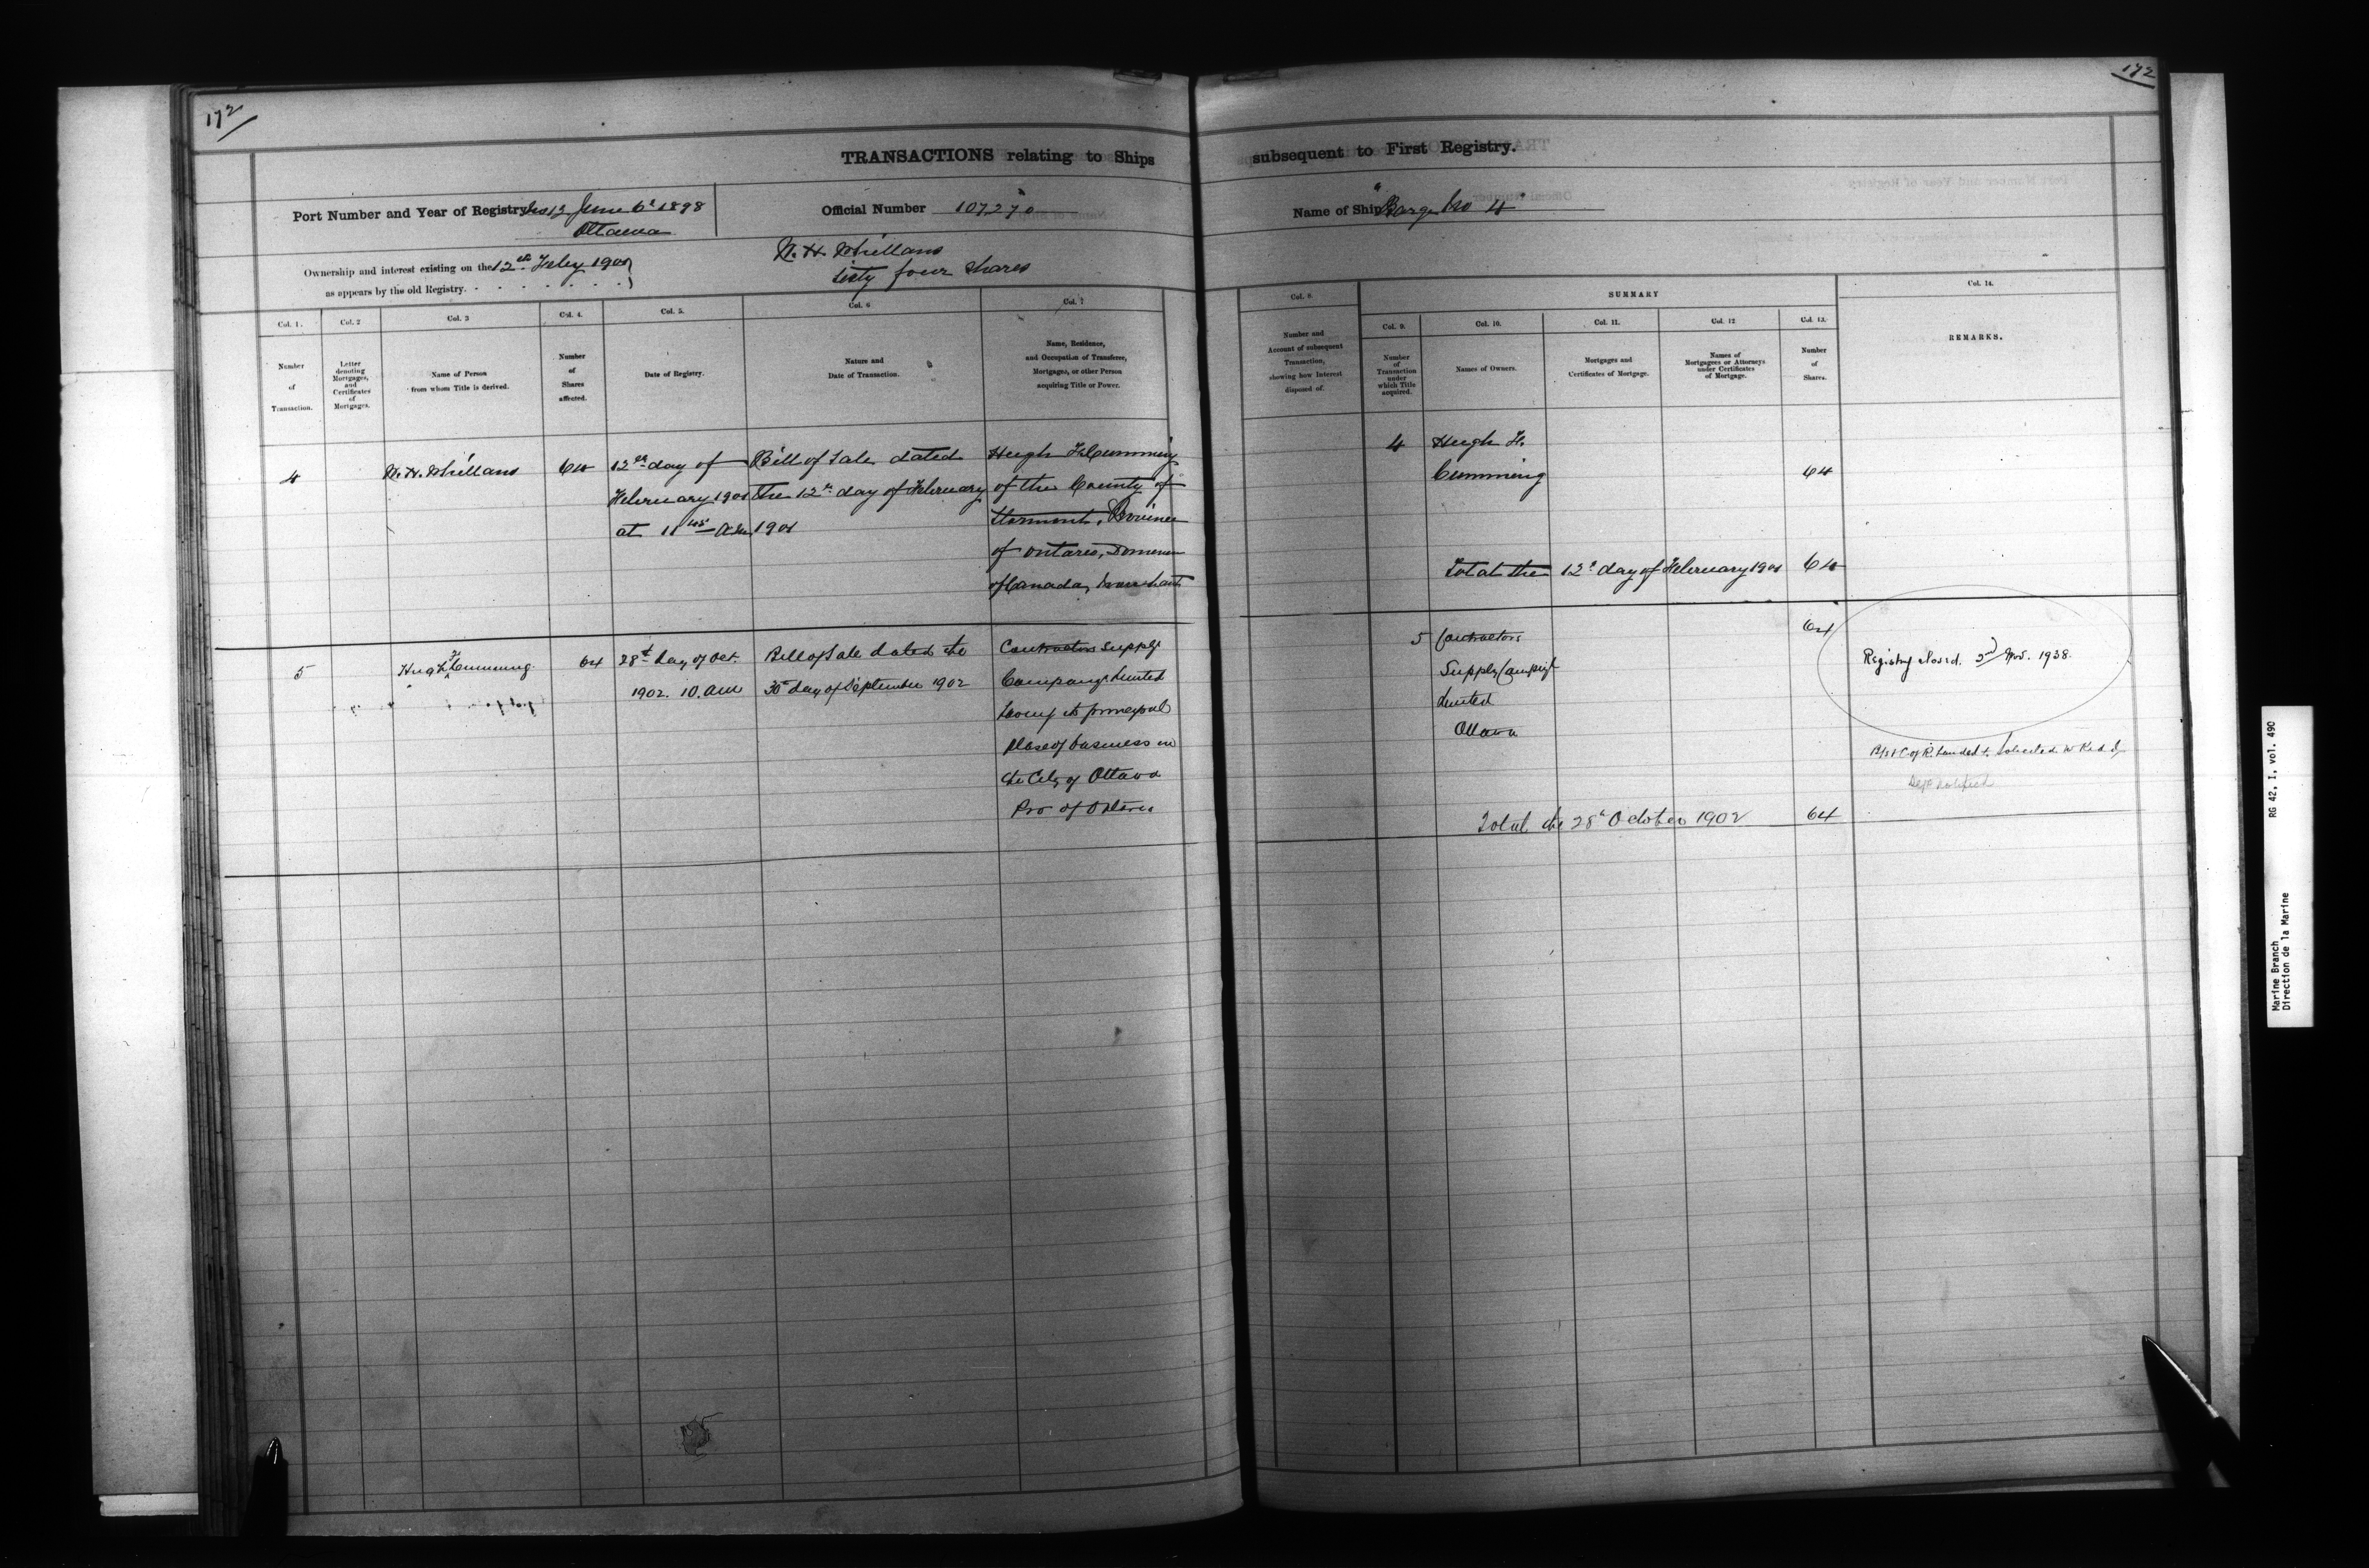 172
172
TRANSACTIONS relating to Ships subsequent to First Registry.
Port Number and Year of Registry No 13 June 6th 1898
Ottawa
Official Number 107270
Name of Ship "Barge No 4
Ownership and interest existing on the 12th Feby 1901
as appears by the old Registry.
N. H. Whillans
sixty four shares
Col. 1.
Number
of
Transaction.
Col. 2
Letter
denoting
Mortgages,
and
Certificates
of
Mortgages.
Col. 3
Name of Person
from whom Title is derived.
Col. 4.
Number
of
Shares
affected.
Col. 5.
Date of Registry.
Col. 6
Nature and
Date of Transaction.
Col. 7
Name, Residence,
and Occupation of Transferee,
Mortgagee, or other Person
acquiring Title or Power.
Col. 8.
Number and
Account of subsequent
Transaction,
showing how Interest
disposed of.
SUMMARY
Col. 9.
Number
of
Transaction
under
which Title
acquired.
Col. 10.
Names of Owners.
Col. 11.
Mortgages and
Certificates of Mortgage.
Col. 12
Names of
Mortgagees or Attorneys
under Certificates
of Mortgage.
Col. 13.
Number
of
Shares.
Col. 14.
REMARKS.
4
N. H. Whillans
64
12th day of
February 1901
at 11 45 A.M.
Bill of Sale dated
the 12th day of February
1901
Hugh F. Cumming
of the County of
Stormont, Province
of Ontario, Dominion
of Canada, merchant
4
Hugh F.
Cumming
64
Total the 12th day of February 1901 64
5
Hugh F. Cumming
64
28th day of Oct.
1902. 10. am
Bill of Sale dated the
30 day of September 1902
Contractors Supply
Company Limited
having its principal
place of business in
the City of Ottawa
Pro of Ontario
5
Contractors
Supply Company
Limited
Ottawa
64
Registry closed. 2nd Nov. 1938.
Dept notified
Total the 28th October 1902 64
Marine Branch RG 42, I, vol. 490
Direction de la Marine